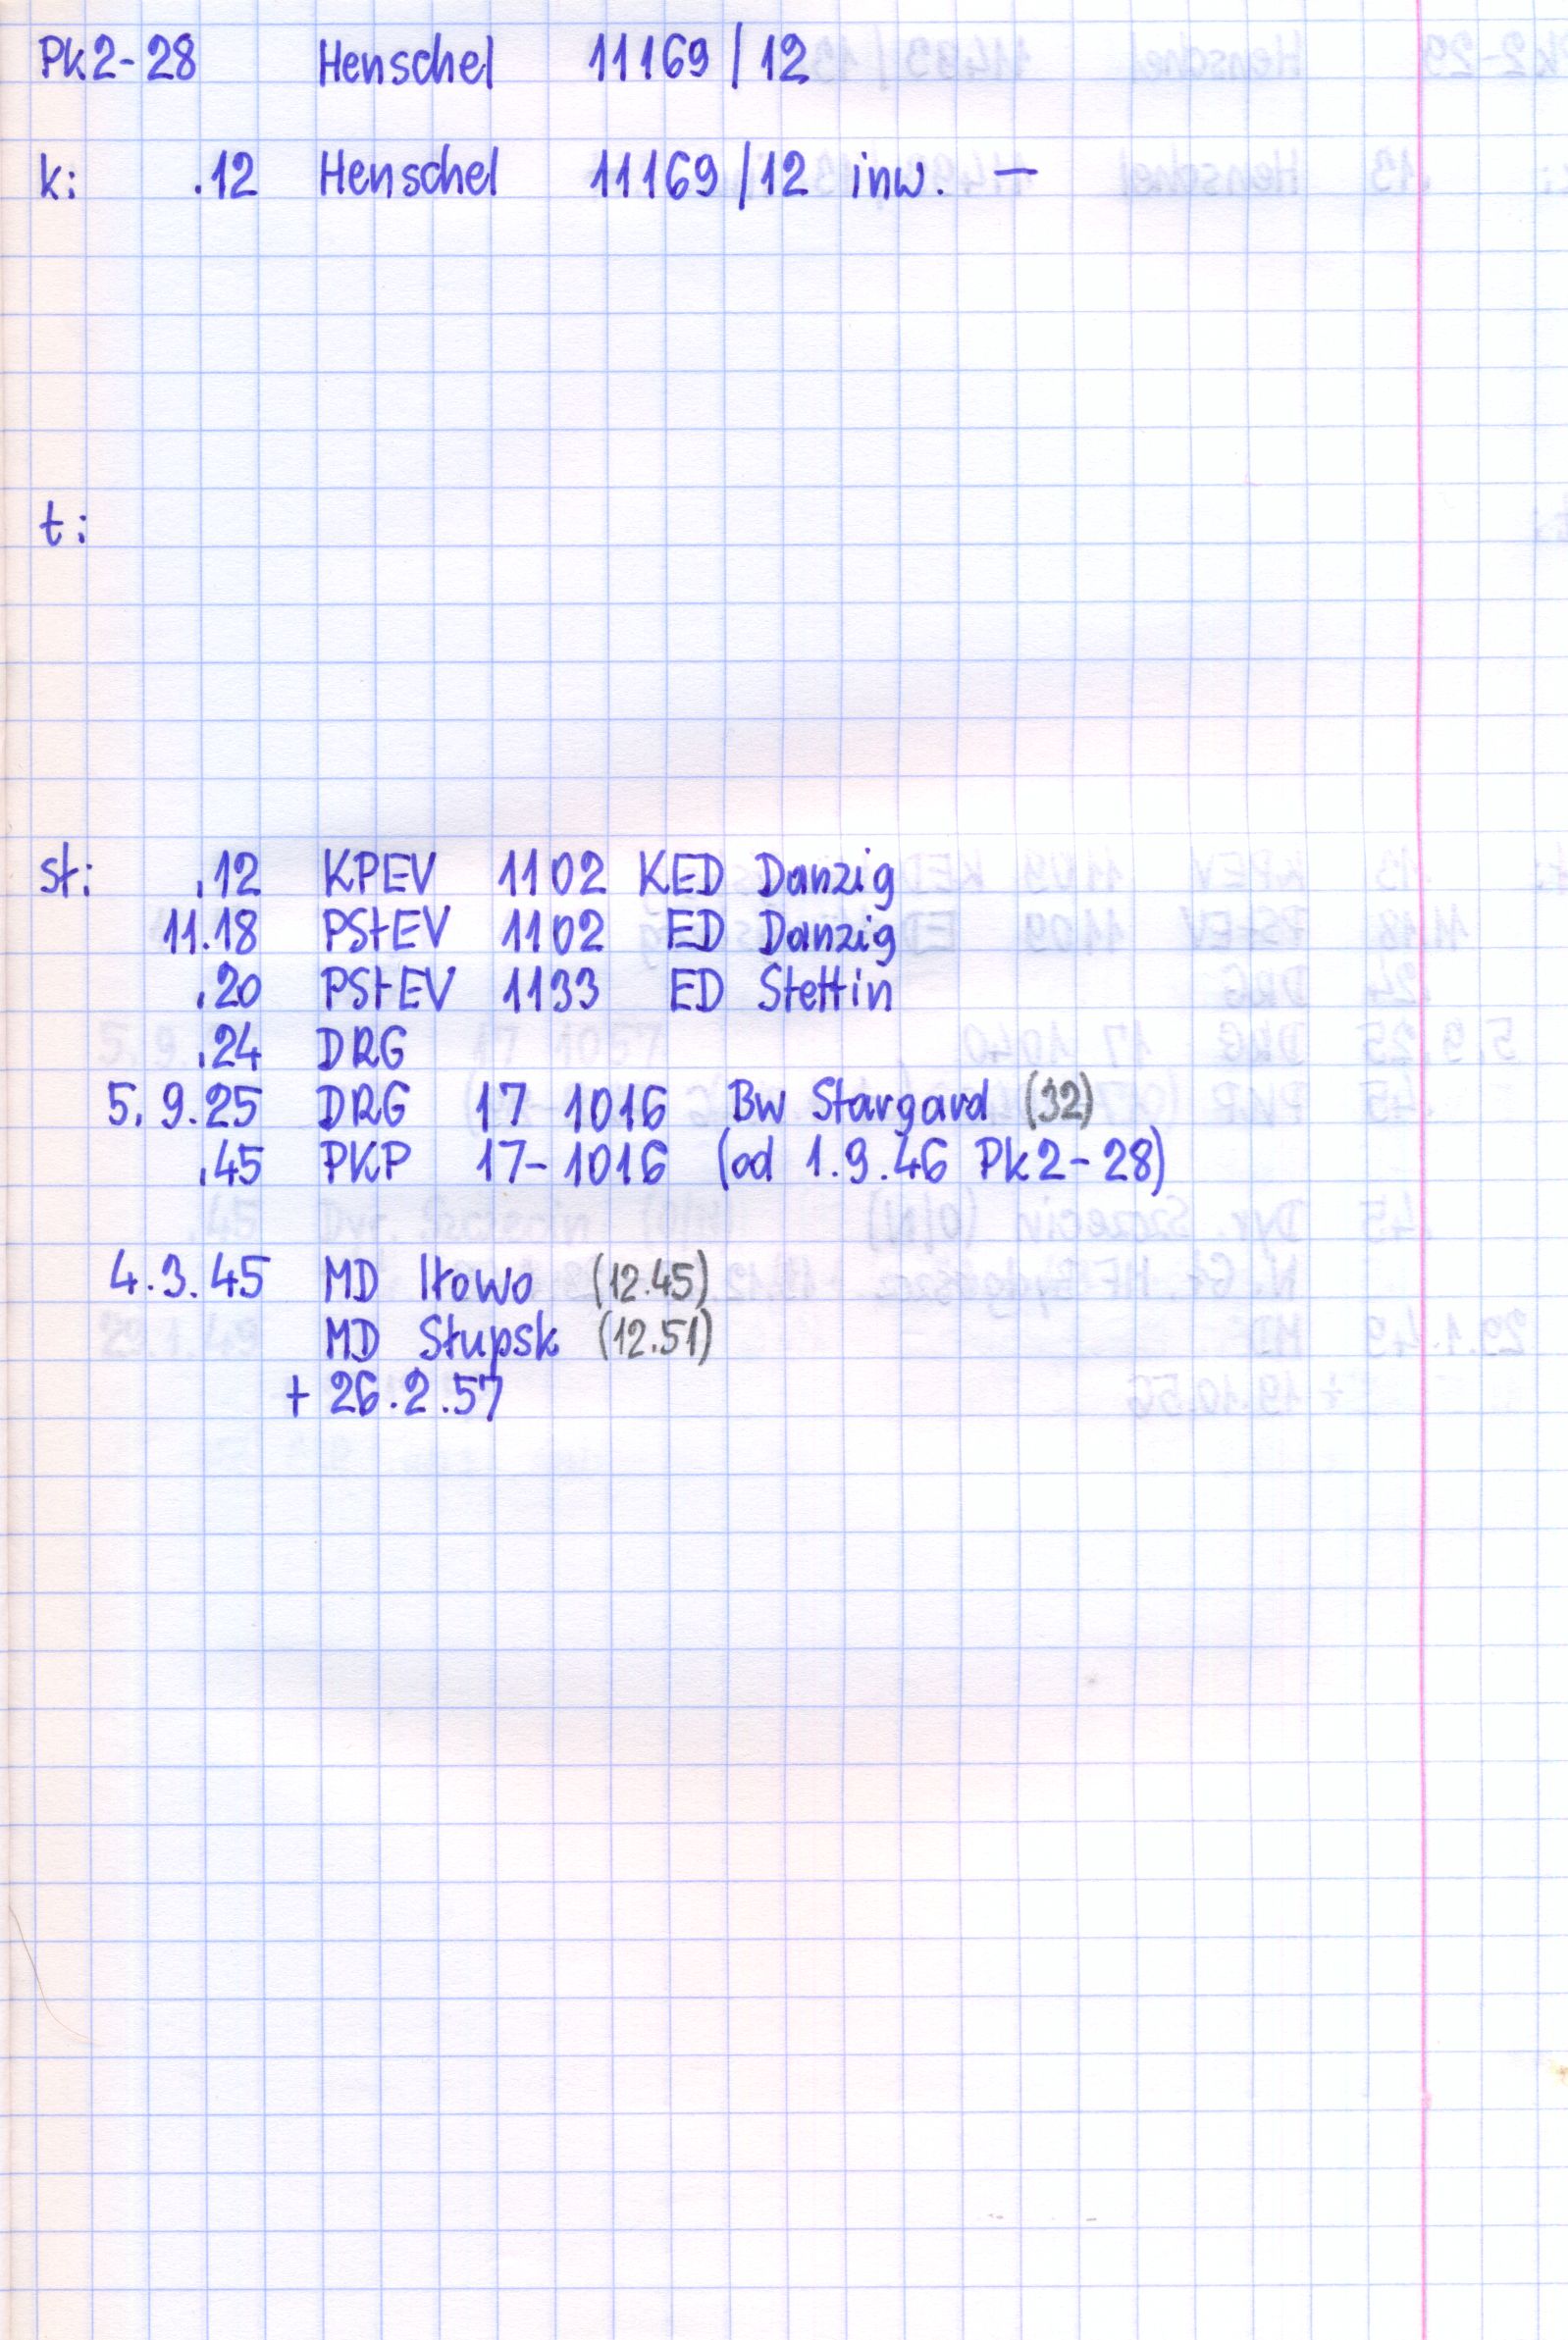 Pk2-28 Henschel 11169/12
k: .12 Henschel 11169/12 inw. —
t:
st: .12 KPEV 1102 KED Danzig
11.18 PStEV 1102 ED Danzig
.20 PStEV 1133 ED Stettin
.24 DRG
5.9.25 DRG 17 1016 Bw Stargard (32)
.45 PKP 17-1016 (od 1.9.46 Pk2-28)
4.3.45 MD Iłowo (12.45)
MD Słupsk (12.51)
+ 26.2.57